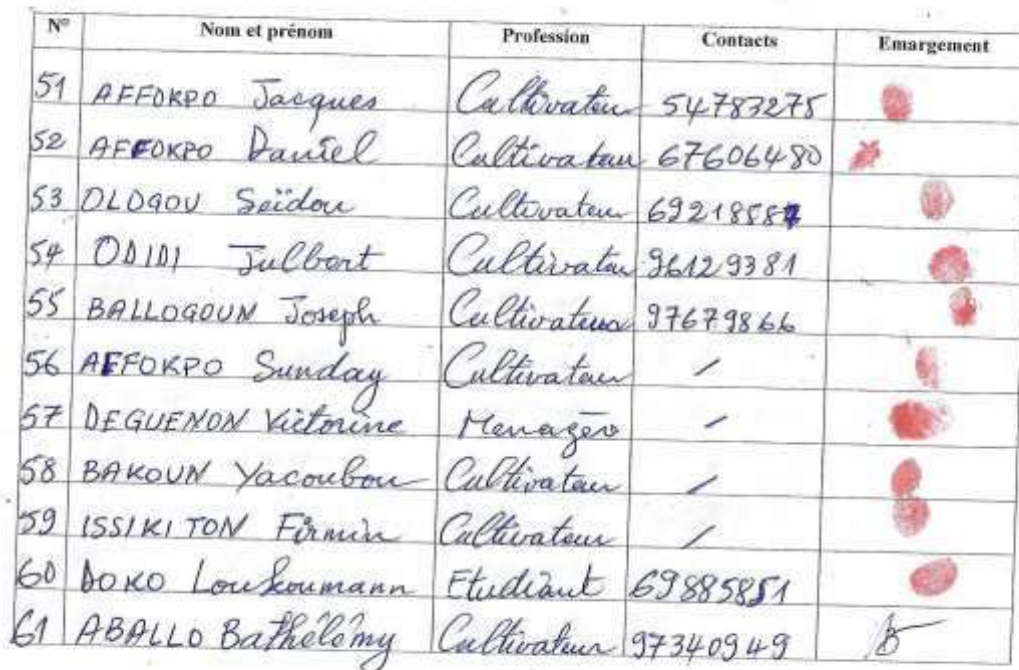 N° Nom et prénom Profession Contacts Emargement
51 AFFOKPO Jacques Cultivateur 54783275
52 AFFOKPO Daniel Cultivateur 67606480
53 OLOGOU Seïdou Cultivateur 69218587
54 ODIDI Julbert Cultivateur 96129381
55 BALLOGOUN Joseph Cultivateur 97679866
56 AFFOKPO Sunday Cultivateur /
57 DEGUENON Victorine Menagère /
58 BAKOUN Yacoubou Cultivateur /
59 ISSIKITON Firmin Cultivateur /
60 DOKO Loukoumann Etudiant 69885851
61 ABALLO Bathélémy Cultivateur 97340949